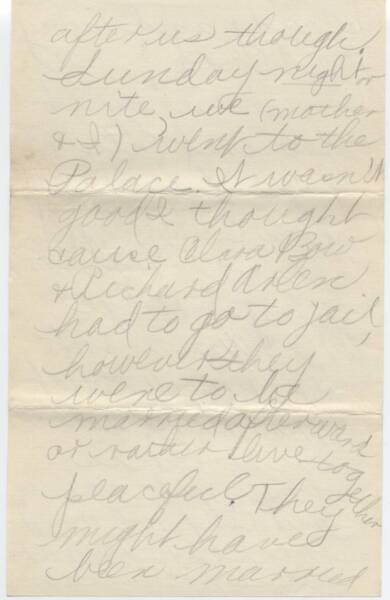 after us though.
Sunday night or
nite, we (mother
& I) went to the
Palace. It wasn't
good I thought
cause Clara Bow
& Richard Arlen
had to go to jail,
however they
were to be
married afterward
or rather live together
peaceful. They
might have
been married